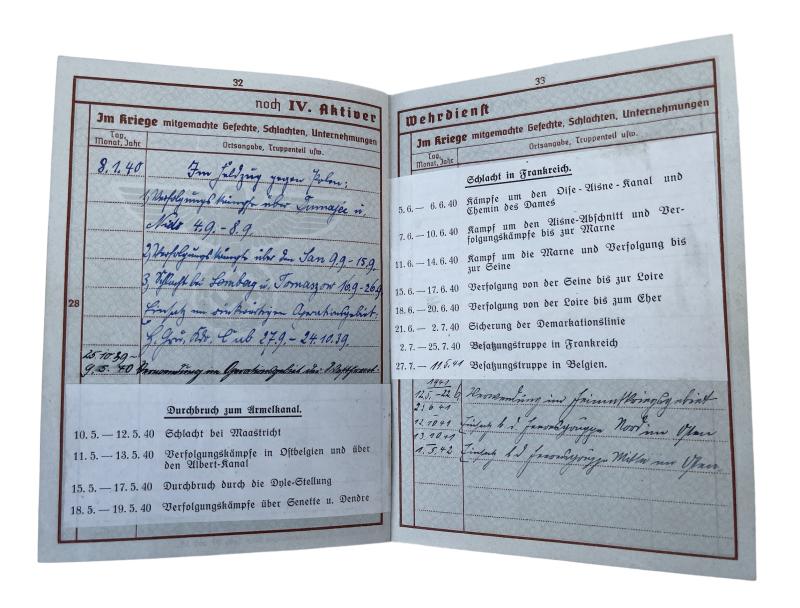 32
noch IV. Aktiver
Im Kriege mitgemachte Gefechte, Schlachten, Unternehmungen
Tag, Monat, Jahr
Ortsangabe, Truppenteil usw.
8.1.40
Im Feldzug gegen Polen:
1, Verfolgungskämpfe über Dunajec u.
Nida 4.9. - 8.9.
2, Verfolgungskämpfe über den San 9.9 - 15.9.
3, Schlacht bei Lemberg u. Tomaszow 10.9 - 26.9.
Einsatz im rückwärtigen Operationsgebiet
H. Gru. Kdo. C ab 27.9. - 24.10.39.
28
25.10.39 -
9.5.40 Verwendung im Operationsgebiet der Westfront
Durchbruch zum Armelkanal.
10. 5. — 12. 5. 40 Schlacht bei Maastricht
11. 5. — 13. 5. 40 Verfolgungskämpfe in Ostbelgien und über
den Albert-Kanal
15. 5. — 17. 5. 40 Durchbruch durch die Dyle-Stellung
18. 5. — 19. 5. 40 Verfolgungskämpfe über Senette u. Dendre
33
Wehrdienst
Im Kriege mitgemachte Gefechte, Schlachten, Unternehmungen
Tag, Monat, Jahr
Ortsangabe, Truppenteil usw.
Schlacht in Frankreich.
5. 6. — 6. 6. 40 Kämpfe um den Oise-Aisne-Kanal und
Chemin des Dames
7. 6. — 10. 6. 40 Kampf um den Aisne-Abschnitt und Ver-
folgungskämpfe bis zur Marne
11. 6. — 14. 6. 40 Kampf um die Marne und Verfolgung bis
zur Seine
15. 6. — 17. 6. 40 Verfolgung von der Seine bis zur Loire
18. 6. — 20. 6. 40 Verfolgung von der Loire bis zum Cher
21. 6. — 2. 7. 40 Sicherung der Demarkationslinie
2. 7. — 25. 7. 40 Besatzungstruppe in Frankreich
27. 7. — 11.5.41 Besatzungstruppe in Belgien.
1941
12.5. - 22.6. Verwendung im Heimatkriegsgebiet
12.10.41 Einsatz b. d. Heeresgruppe Nord im Osten
13.10.41
1.5.42 Einsatz b. d. Heeresgruppe Mitte im Osten